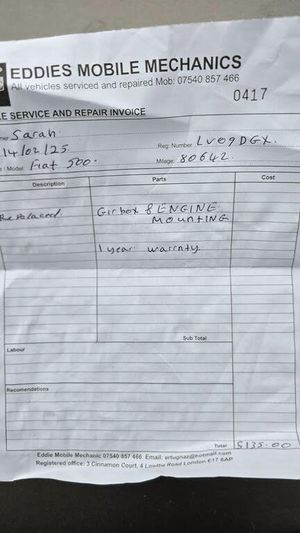 EDDIES MOBILE MECHANICS
All vehicles serviced and repaired Mob: 07540 857 466
0417
E SERVICE AND REPAIR INVOICE
Sarah
Reg: Number LV09DGX
14/02/25
Mileage: 80642
Model: Fiat 500.
Description Parts Cost
Replaced Girbox & ENGINE
MOUNTING
1 year warrnty
Sub Total
Labour
Recomendations
Total £135.00
Eddie Mobile Mechanic 07540 857 466. Email: ertugnaz@hotmail.com
Registered office: 3 Cinnamon Court, 4 Road London E17 8AP